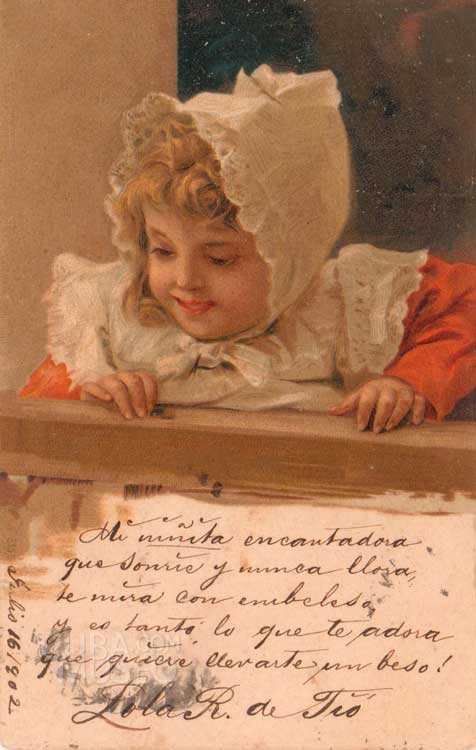 Mi niñita encantadora
que sonrie y nunca llora,
te mira con embeleso,
y es tanto lo que te adora
que quiere llevarte un beso!
Lola R. de Tió
Julio 16/902